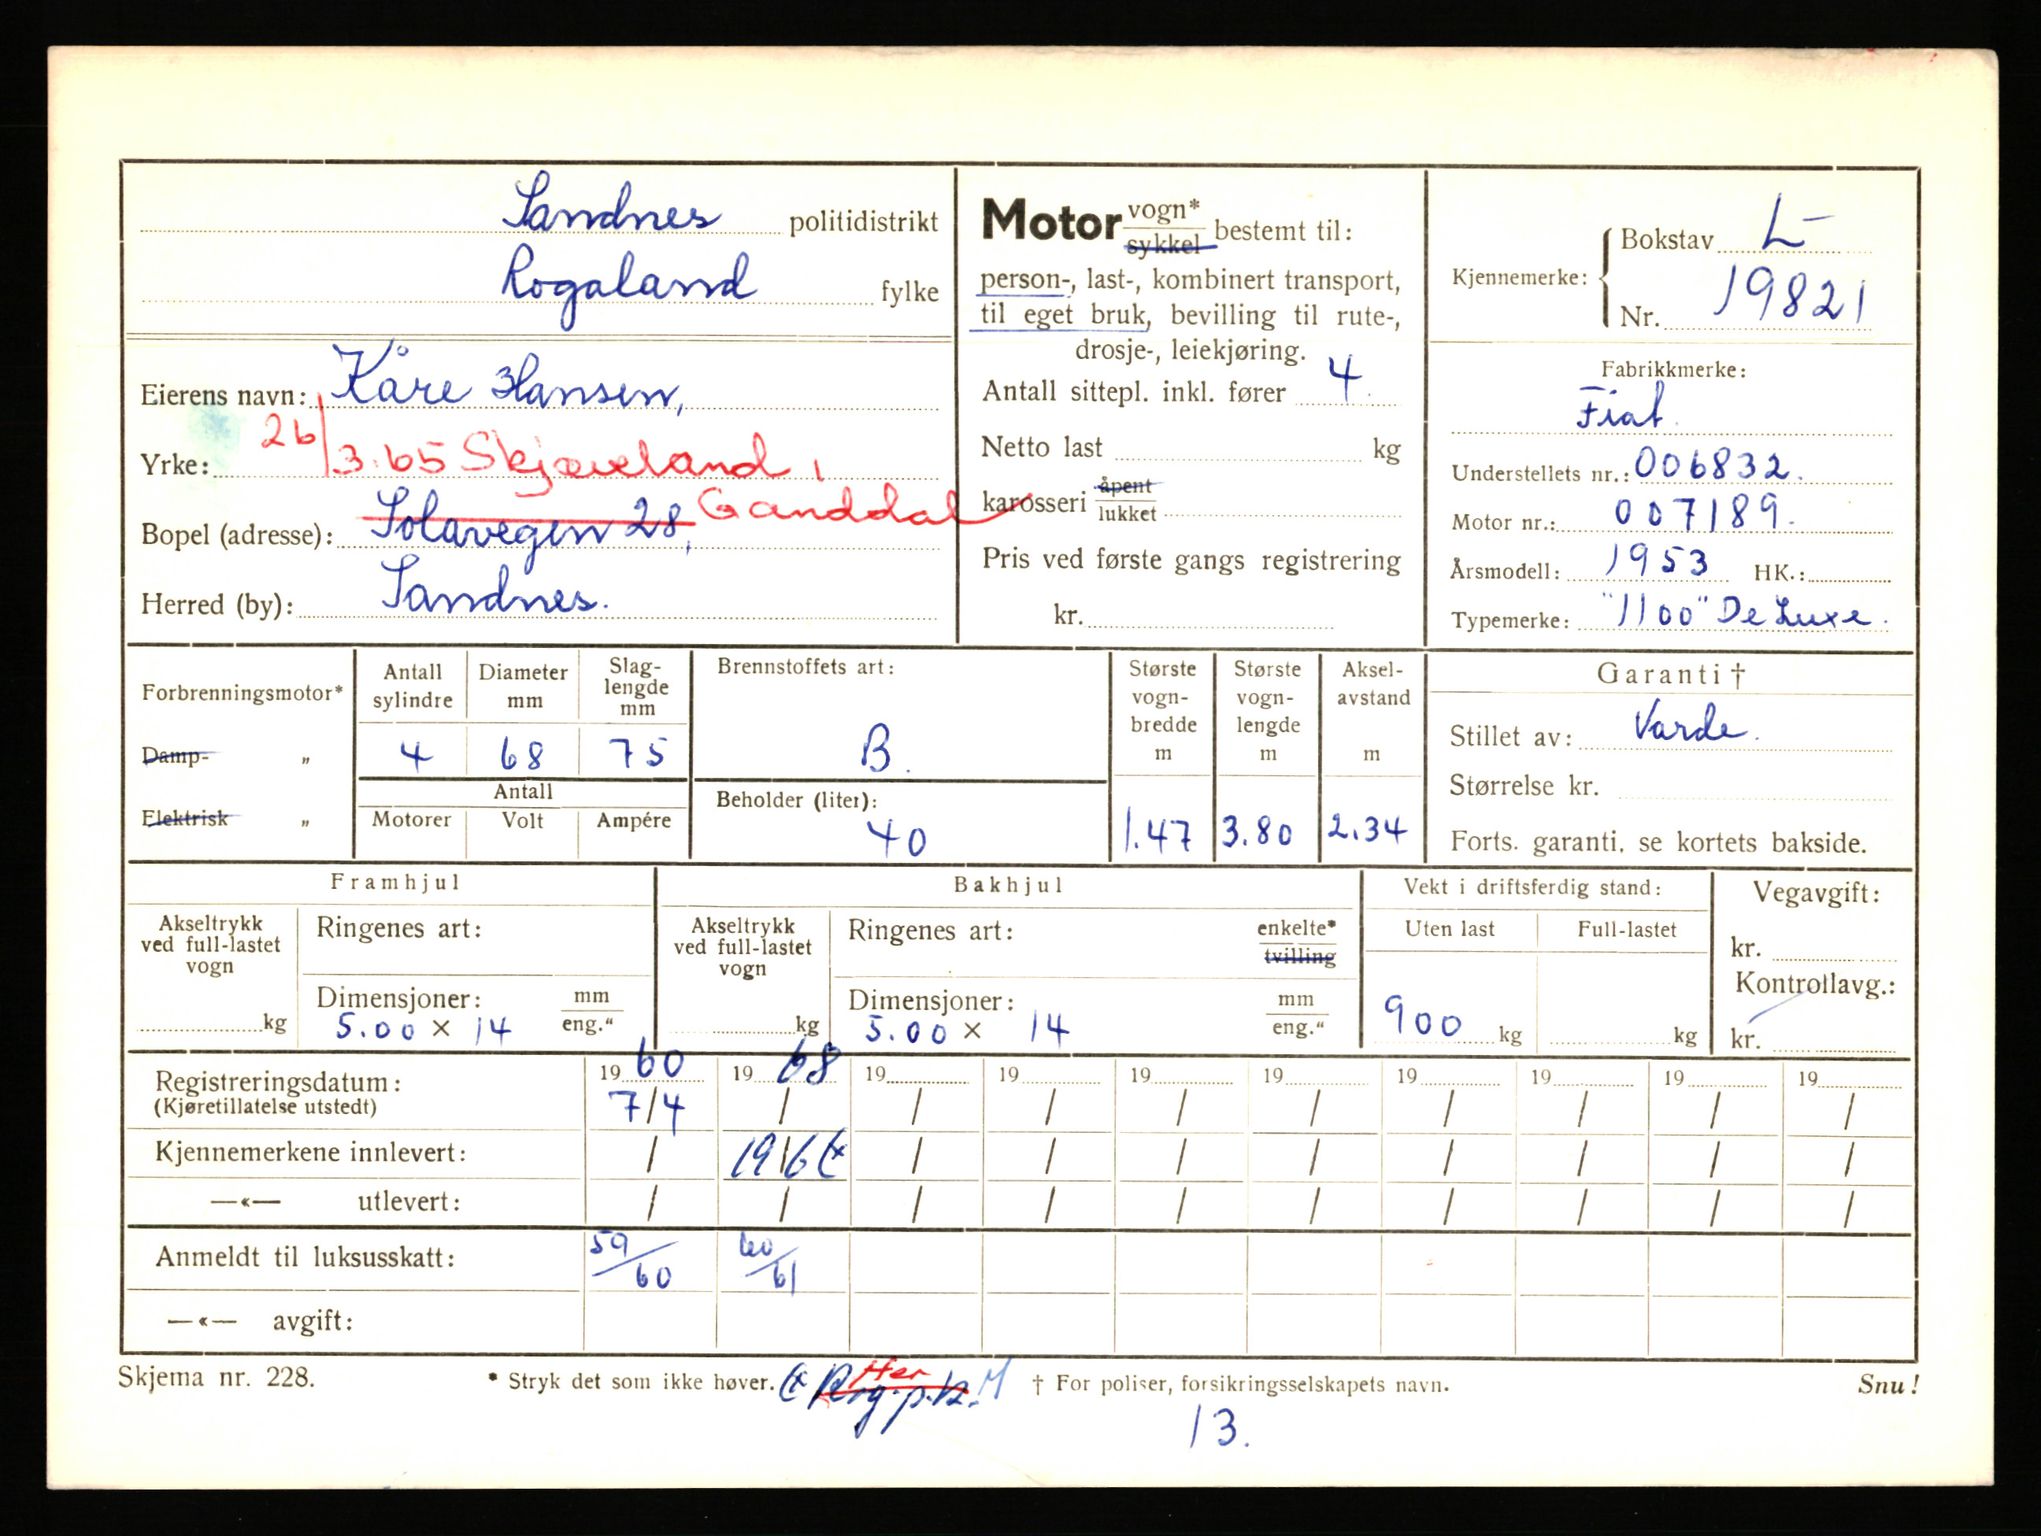 Sandnes politidistrikt
Rogaland fylke
Eierens navn: Kåre Hansen,
Yrke: 26/3.65 Skjæveland,
Ganddal
Bopel (adresse): Solavegen 28,
Herred (by): Sandnes.
Motor vogn* sykkel bestemt til:
person-, last-, kombinert transport,
til eget bruk, bevilling til rute-,
drosje-, leiekjøring.
Antall sittepl. inkl. fører 4
Netto last kg
karosseri åpent lukket
Pris ved første gangs registrering
kr.
Kjennemerke: Bokstav L-
Nr. 19821
Fabrikkmerke:
Fiat.
Understellets nr.: 006832.
Motor nr.: 007189.
Årsmodell: 1953 HK.:
Typemerke: "1100" De Luxe.
Forbrenningsmotor*
Damp- „
Elektrisk „
Antall sylindre
Diameter mm
Slag-
lengde
mm
4 68 75
Antall
Motorer Volt Ampére
Brennstoffets art:
B.
Beholder (liter):
40
Største vogn-bredde m
1.47
Største vogn-lengde m
3.80
Aksel-avstand m
2.34
Garanti †
Stillet av: Varde.
Størrelse kr.
Forts. garanti, se kortets bakside.
Framhjul
Akseltrykk ved full-lastet vogn
kg
Ringenes art:
Dimensjoner: mm eng."
5.00 × 14
Bakhjul
Akseltrykk ved full-lastet vogn
kg
Ringenes art: enkelte* tvilling
Dimensjoner: mm eng."
5.00 × 14
Vekt i driftsferdig stand:
Uten last Full-lastet
900 kg kg
Vegavgift:
kr.
Kontrollavg.:
kr.
Registreringsdatum: 1960 1968 19 19 19 19 19 19 19 19
(Kjøretillatelse utstedt) 7/4 / / / / / / / / /
Kjennemerkene innlevert: / 19/6 / / / / / / / /
—«— utlevert: / / / / / / / / / /
Anmeldt til luksusskatt: 59/60 60/61
—«— avgift:
Skjema nr. 228.
* Stryk det som ikke høver.
Her
† For poliser, forsikringsselskapets navn.
Snu!
13.